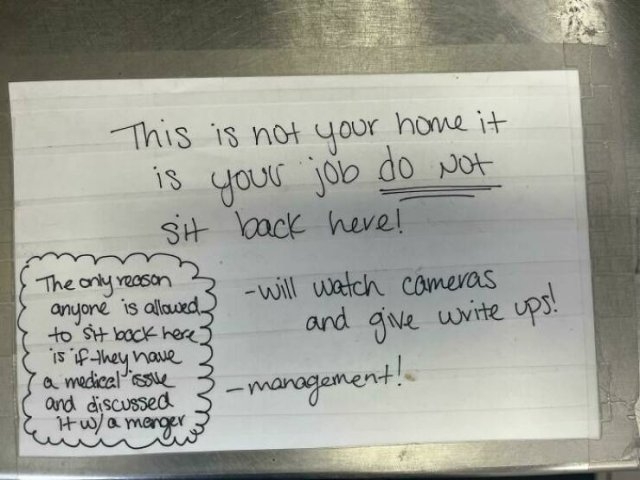 This is not your home it
is your job do NOt
sit back here!
-will watch cameras
and give write ups!
-management!
The only reason
anyone is allowed
to sit back here
is if they have
a medical issue
and discussed
it w/ a manger